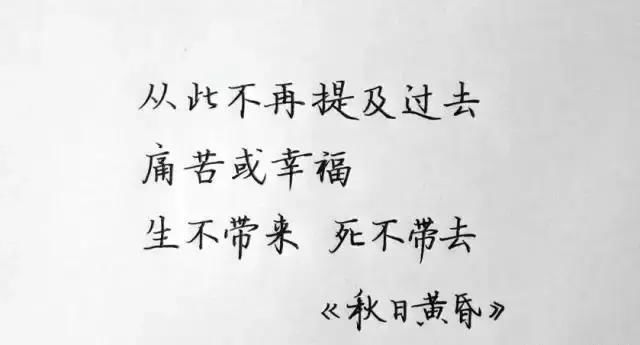 从此不再提及过去
痛苦或幸福
生不带来 死不带去
《秋日黄昏》